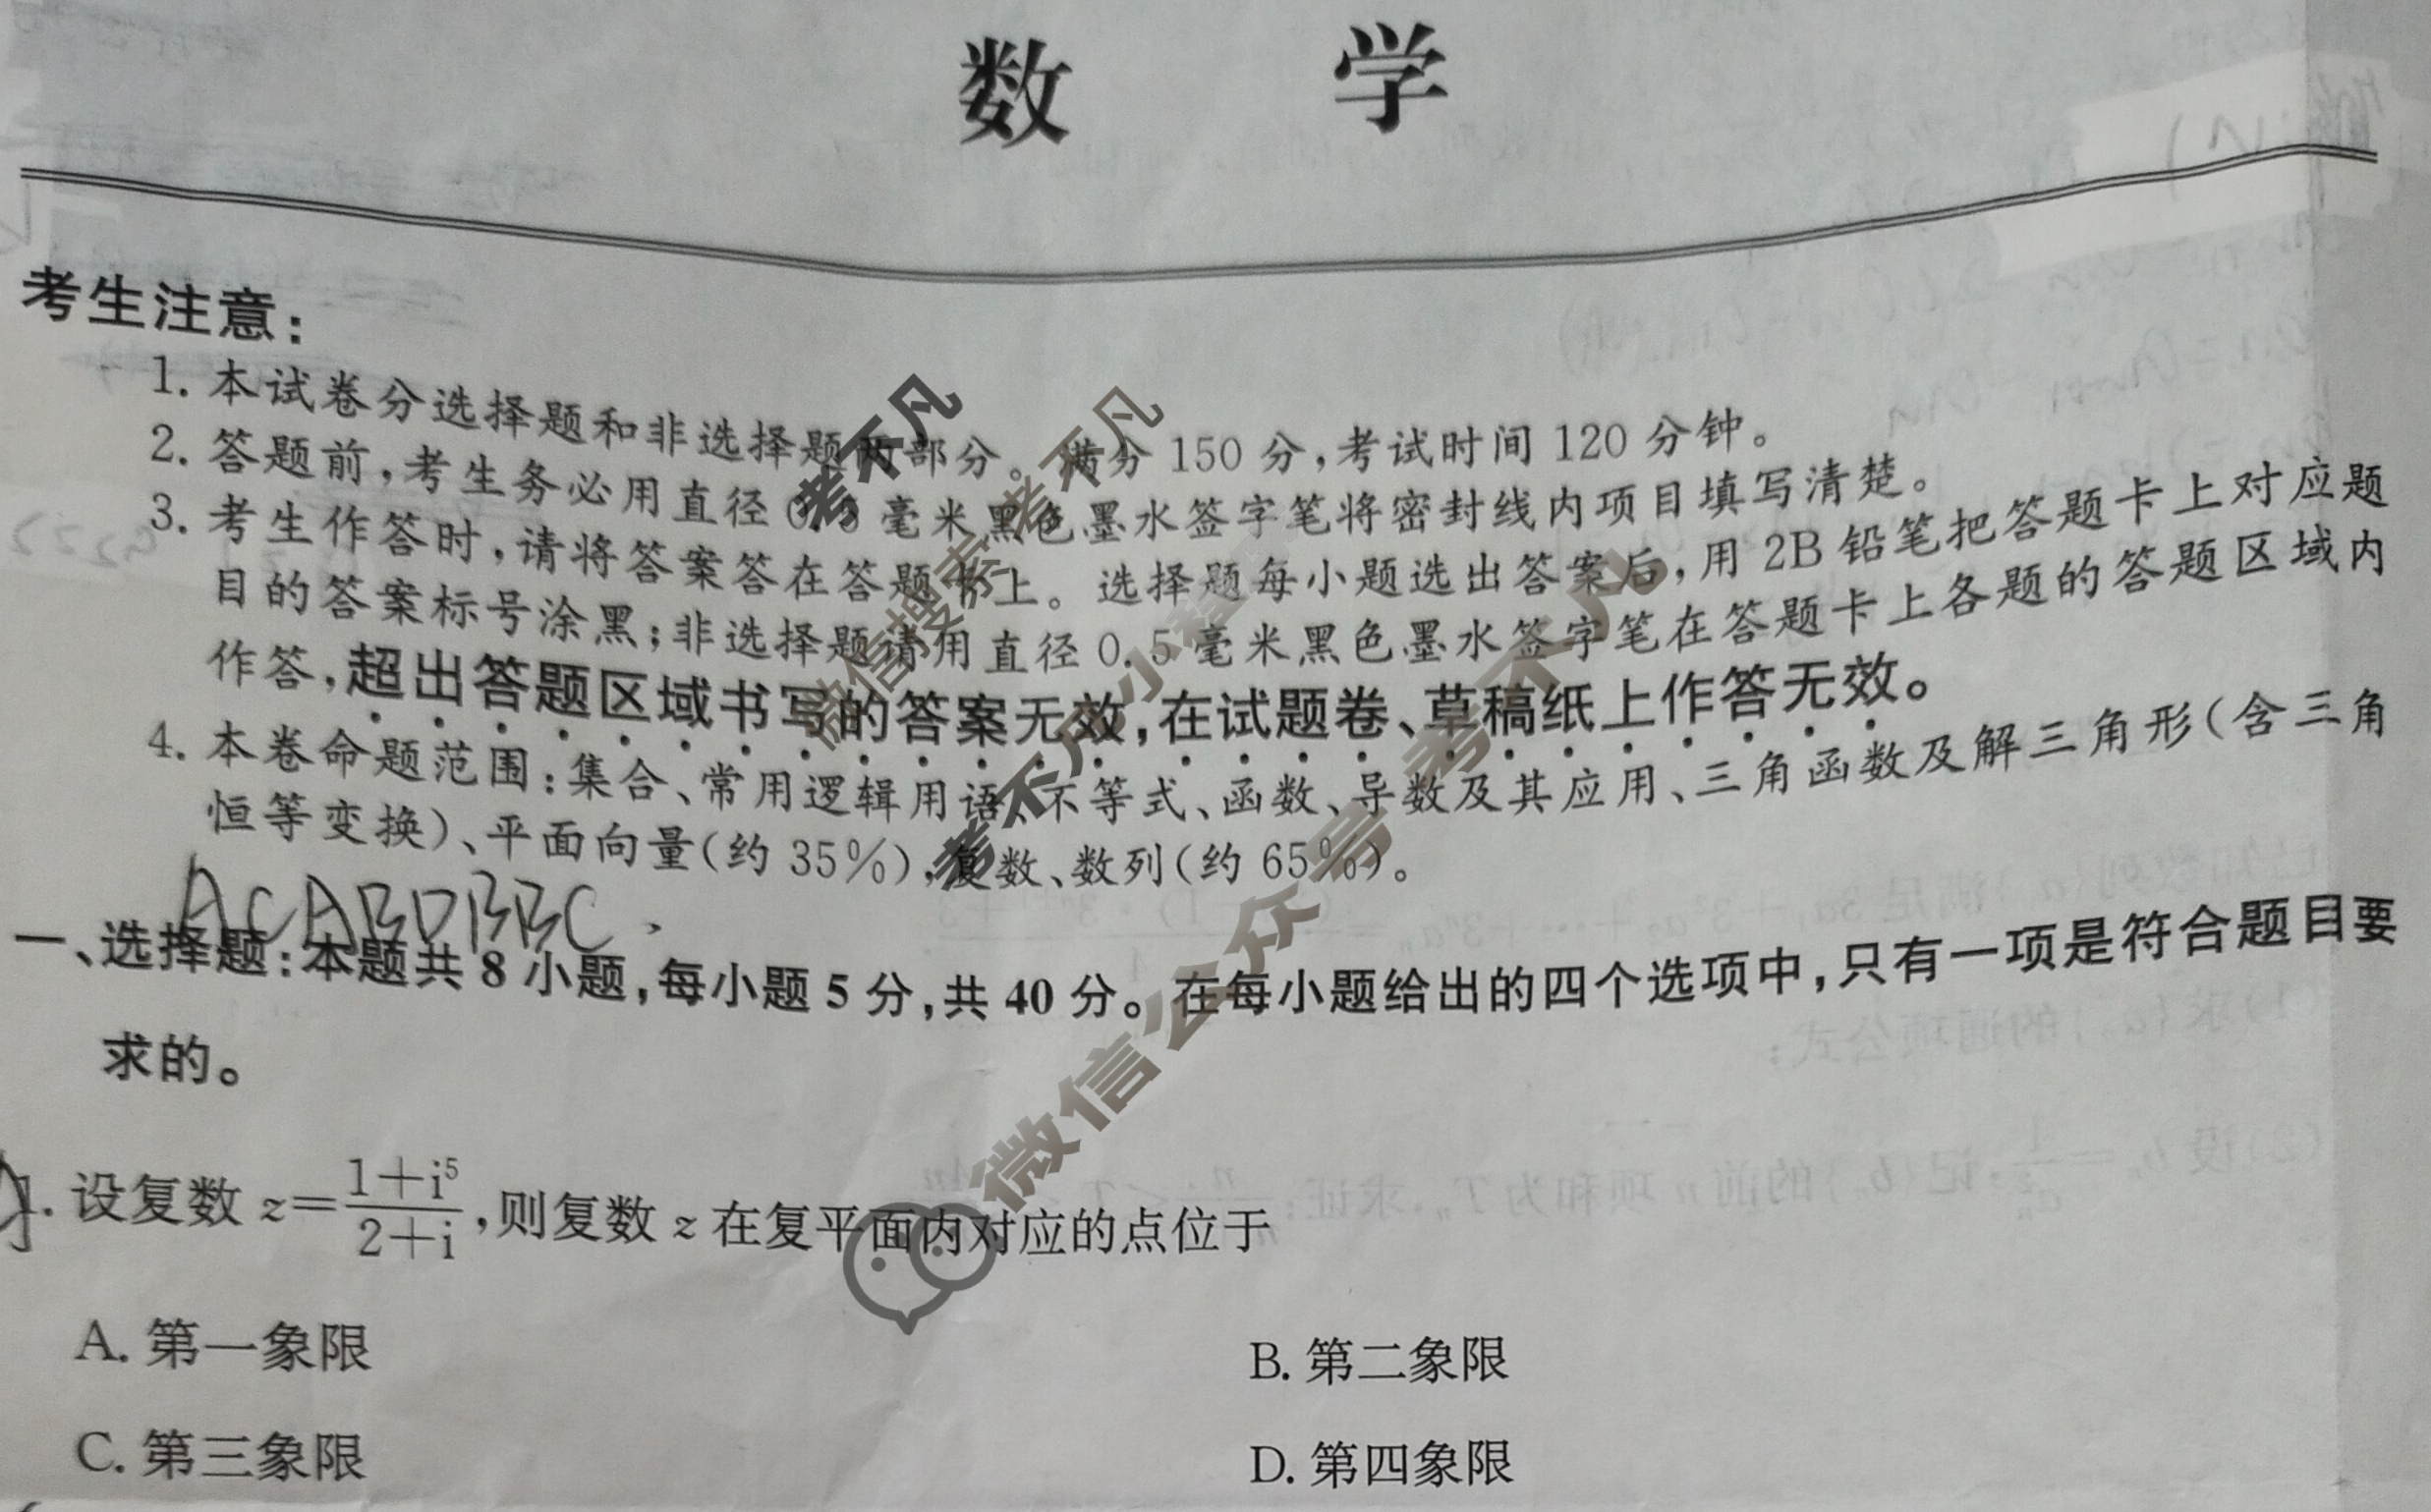 数 学
考生注意:
1. 本试卷分选择题和非选择题两部分。满分 150 分,考试时间 120 分钟。
2. 答题前,考生务必用直径 0.5 毫米黑色墨水签字笔将密封线内项目填写清楚。
3. 考生作答时,请将答案答在答题卡上。选择题每小题选出答案后,用 2B 铅笔把答题卡上对应题
目的答案标号涂黑;非选择题请用直径 0.5 毫米黑色墨水签字笔在答题卡上各题的答题区域内
作答,超出答题区域书写的答案无效,在试题卷、草稿纸上作答无效。
4. 本卷命题范围:集合、常用逻辑用语、不等式、函数、导数及其应用、三角函数及解三角形(含三角
恒等变换)、平面向量(约 35%),复数、数列(约 65%)。
ACABDBBC
一、选择题:本题共 8 小题,每小题 5 分,共 40 分。在每小题给出的四个选项中,只有一项是符合题目要
求的。
1. 设复数 z=\frac{1+i⁵}{2+i},则复数 z 在复平面内对应的点位于
A. 第一象限
B. 第二象限
C. 第三象限
D. 第四象限
考不凡
考不凡
微信搜索
考不凡小程
微信公众号 考不凡